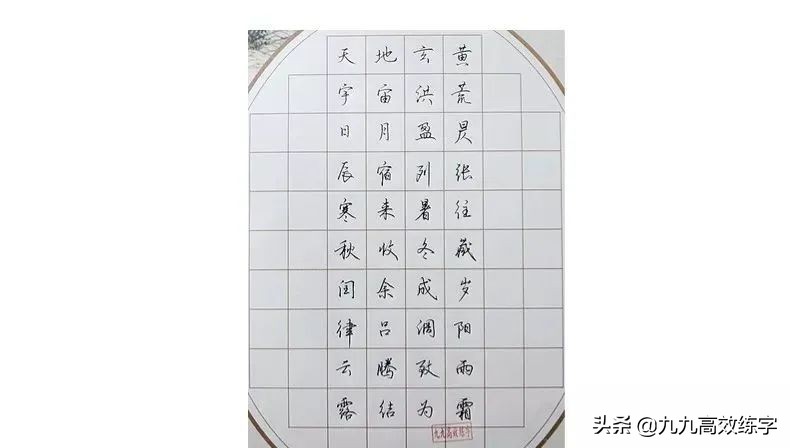 天地玄黄
宇宙洪荒
日月盈昃
辰宿列张
寒来暑往
秋收冬藏
闰余成岁
律吕调阳
云腾致雨
露结为霜
九九高效练字
头条 @九九高效练字